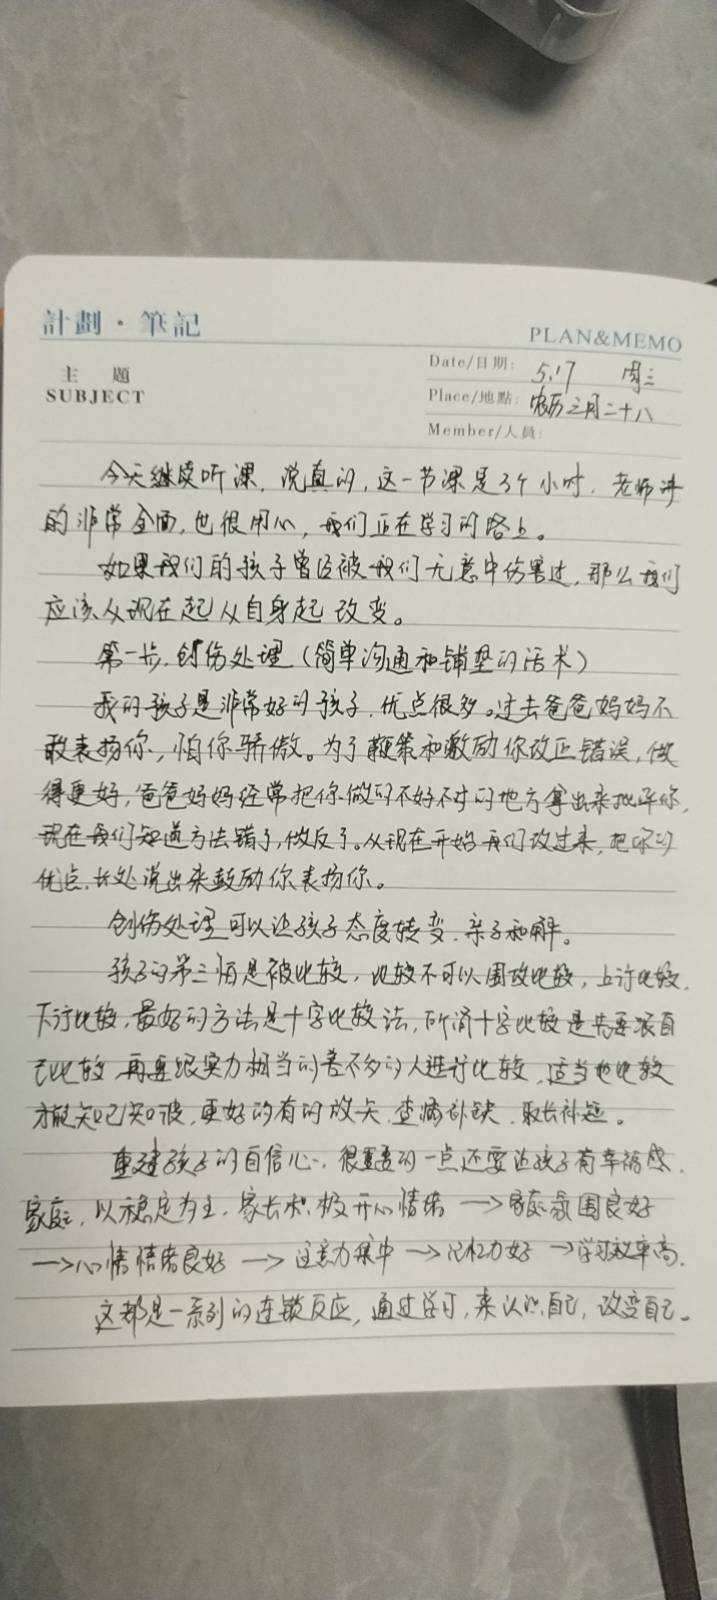 計劃·筆記
PLAN&MEMO
主 題
SUBJECT
Date/日期: 5.17 周三
Place/地點: 农历三月二十八
Member/人員:
今天继续听课，说真的，这一节课是3个小时，老师讲
的非常全面，也很用心，我们正在学习的路上。
如果我们的孩子曾经被我们无意中伤害过，那么我们
应该从现在起从自身起改变。
第一步，创伤处理（简单沟通和铺垫的话术）
我的孩子是非常好的孩子，优点很多。过去爸爸妈妈不
敢表扬你，怕你骄傲。为了鞭策和激励你改正错误，做
得更好，爸爸妈妈经常把你做的不好不对的地方拿出来批评你，
现在我们知道方法错了，做反了。从现在开始我们改过来，把你的
优点，长处说出来鼓励你表扬你。
创伤处理可以让孩子态度转变，亲子和解。
孩子的第三怕是被比较，比较不可以围攻比较，上行比较，
下行比较，最好的方法是十字比较法，所谓十字比较是先要跟自
己比较，再要跟实力相当的差不多的人进行比较，适当也比较
才能知己知彼，更好的有的放矢，查漏补缺，取长补短。
重建孩子的自信心，很重要的一点还要让孩子有幸福感，
家庭，以稳定为主，家长积极开心情绪→家庭氛围良好
→心情情绪良好→注意力集中→记忆力好→学习效率高，
这都是一系列的连锁反应，通过学习，来认识自己，改变自己。